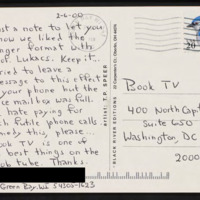 2-6-00
st a note to let you
ow we liked the
nger format with
of. Lukacs. Keep it
ried to leave a
essage to this effect
your phone but the
ice mailbox was full.
hate paying for
ch futile phone calls
medy this, please...
ook TV is one of
best things on the
ob tube. Thanks.
Green Bay, WI 54303-1623
artist: T.P. SPEER
BLACK RIVER EDITIONS
20
Book TV
400 North Cap
Suite 650
Washington, DC
2000